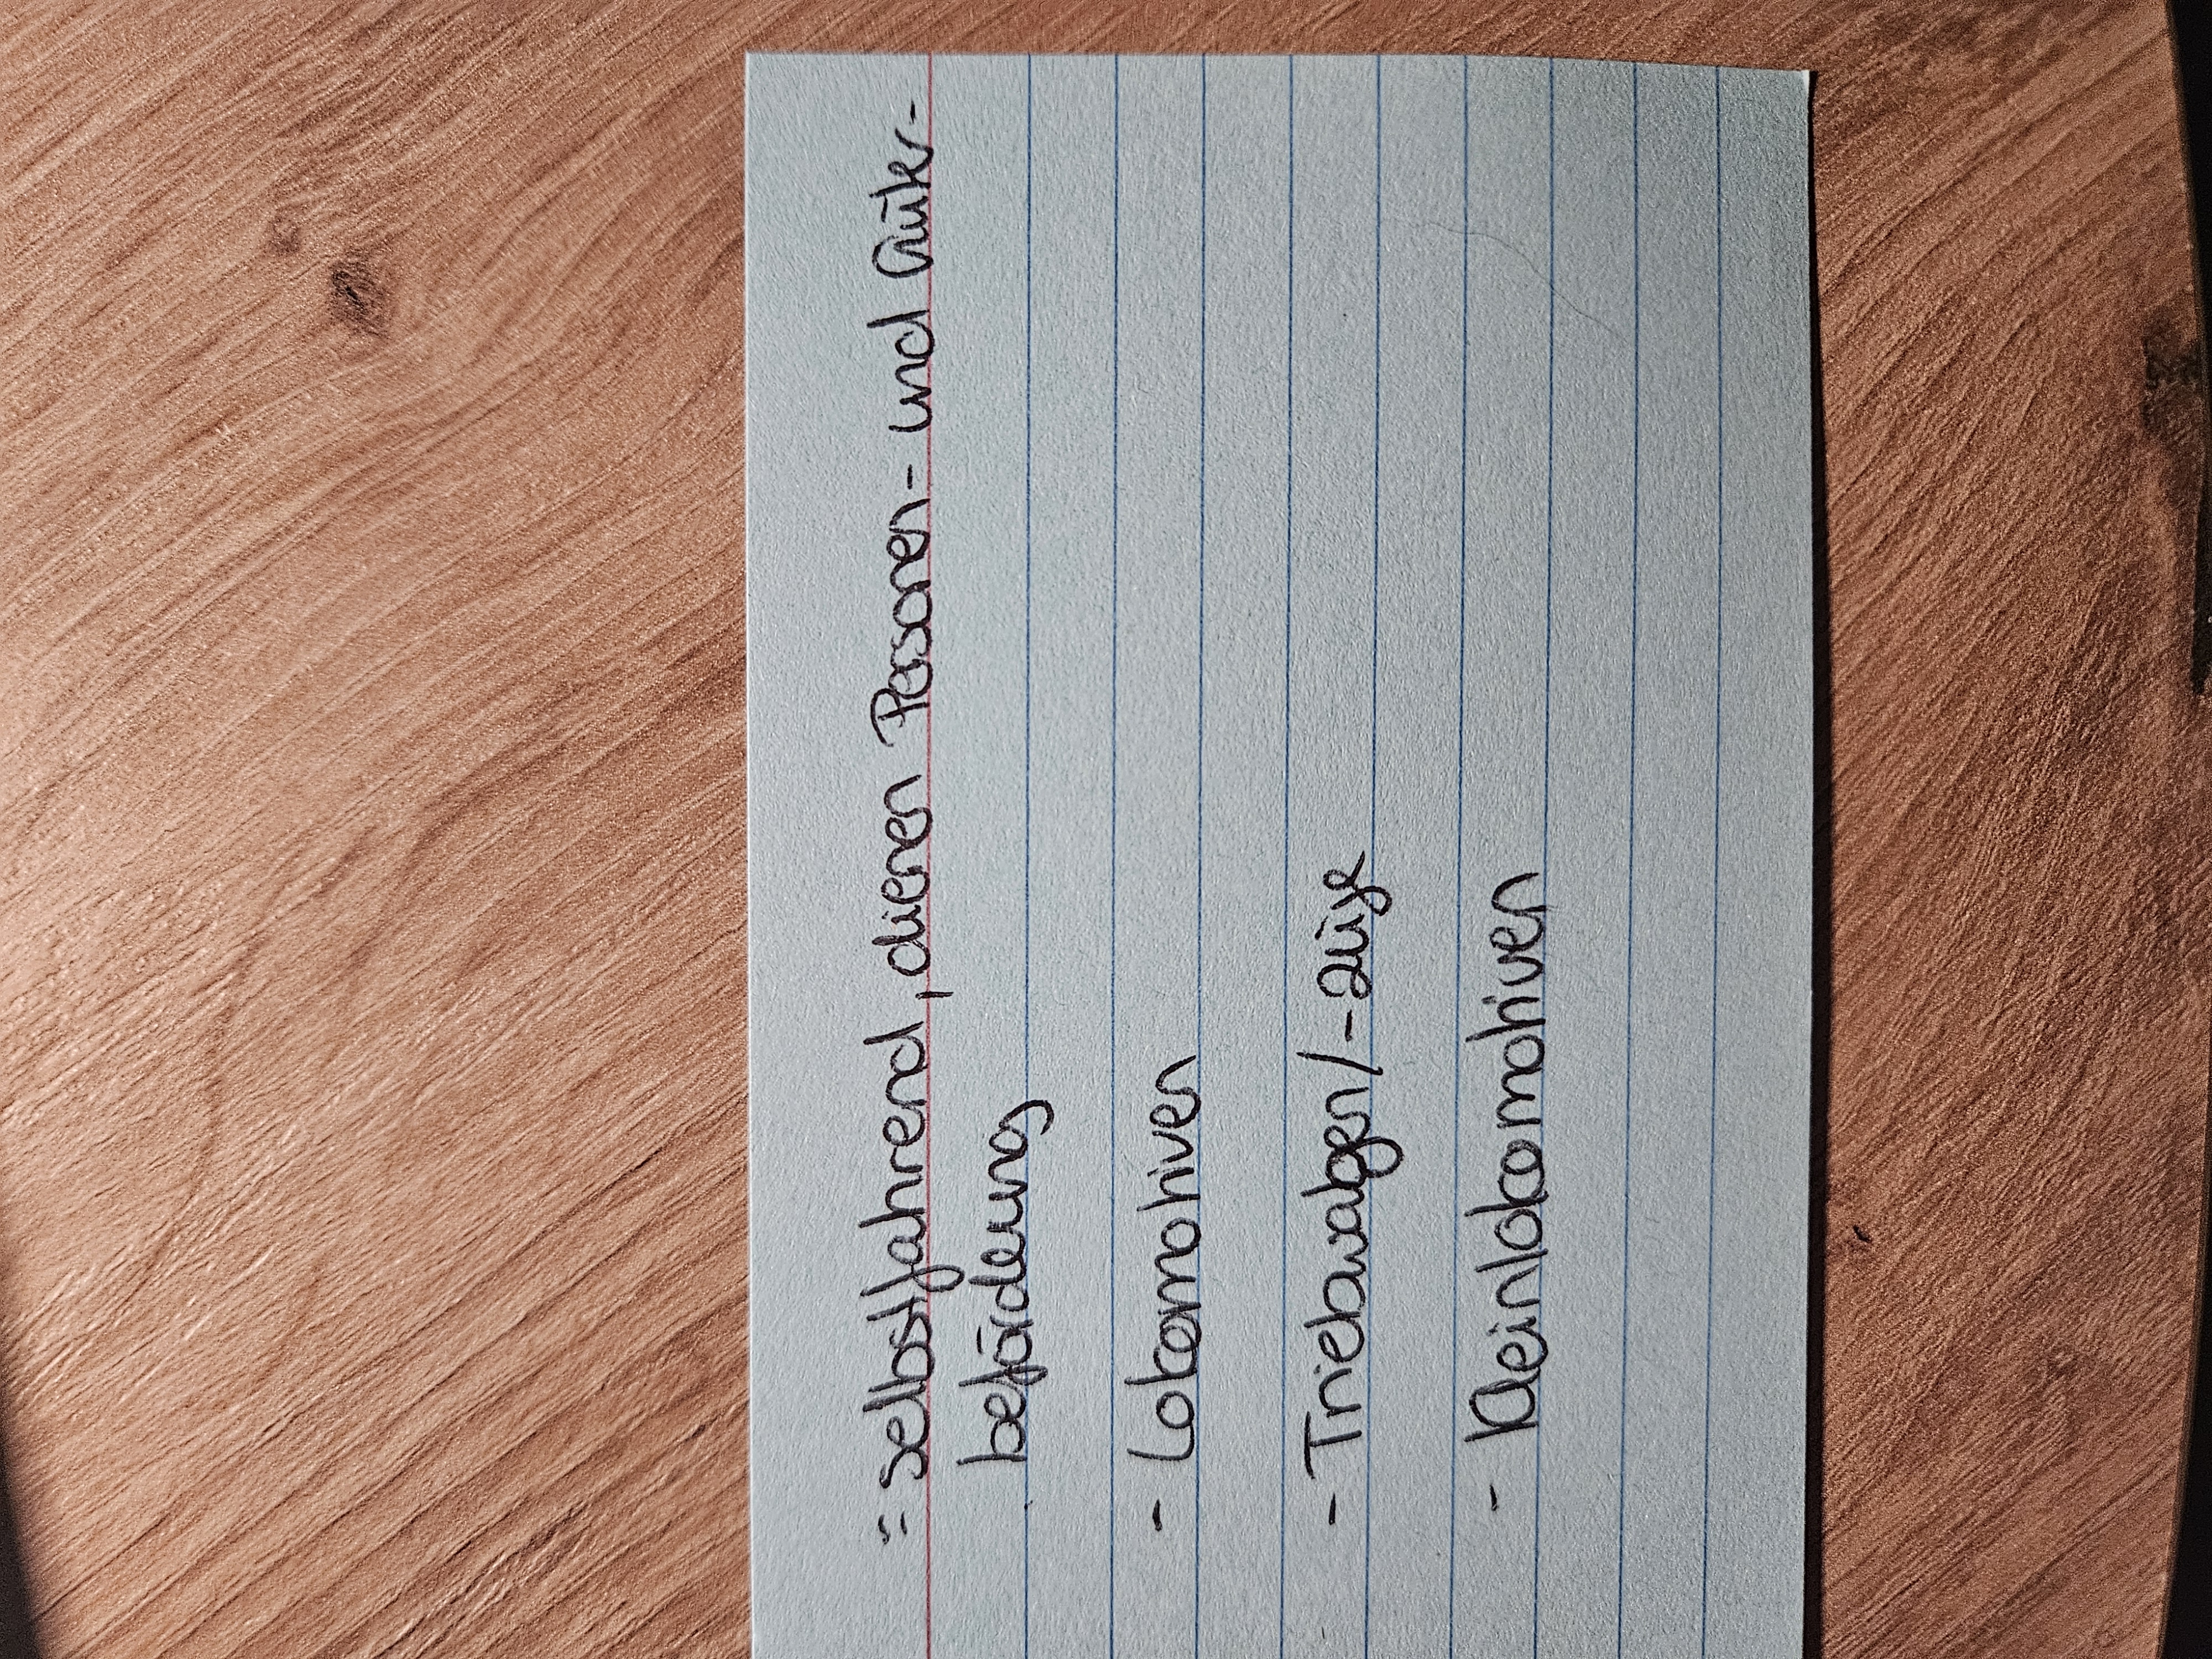 = selbstfahrend, dienen Personen- und Güter-
beförderung
- Lokomotiven
- Triebwagen/-züge
- Kleinlokomotiven